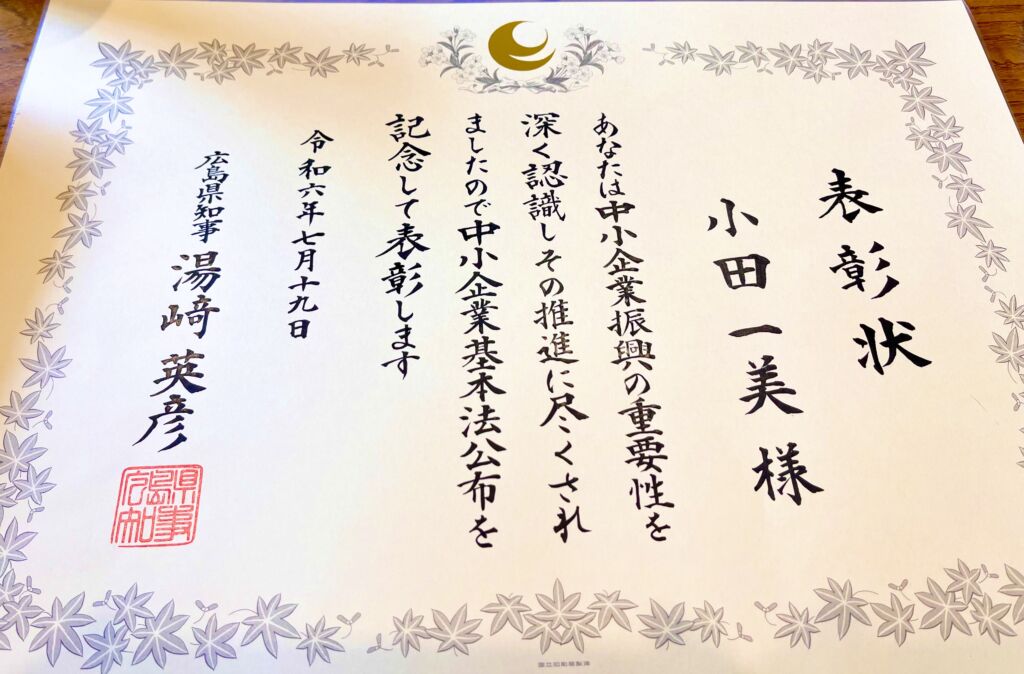 表彰状
小田一美様
あなたは中小企業振興の重要性を
深く認識しその推進に尽くされ
ましたので中小企業基本法公布を
記念して表彰します
令和六年七月十九日
広島県知事 湯﨑英彦
広島県知事